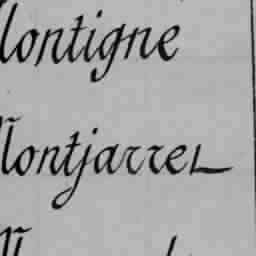 Montigne
Montjarret